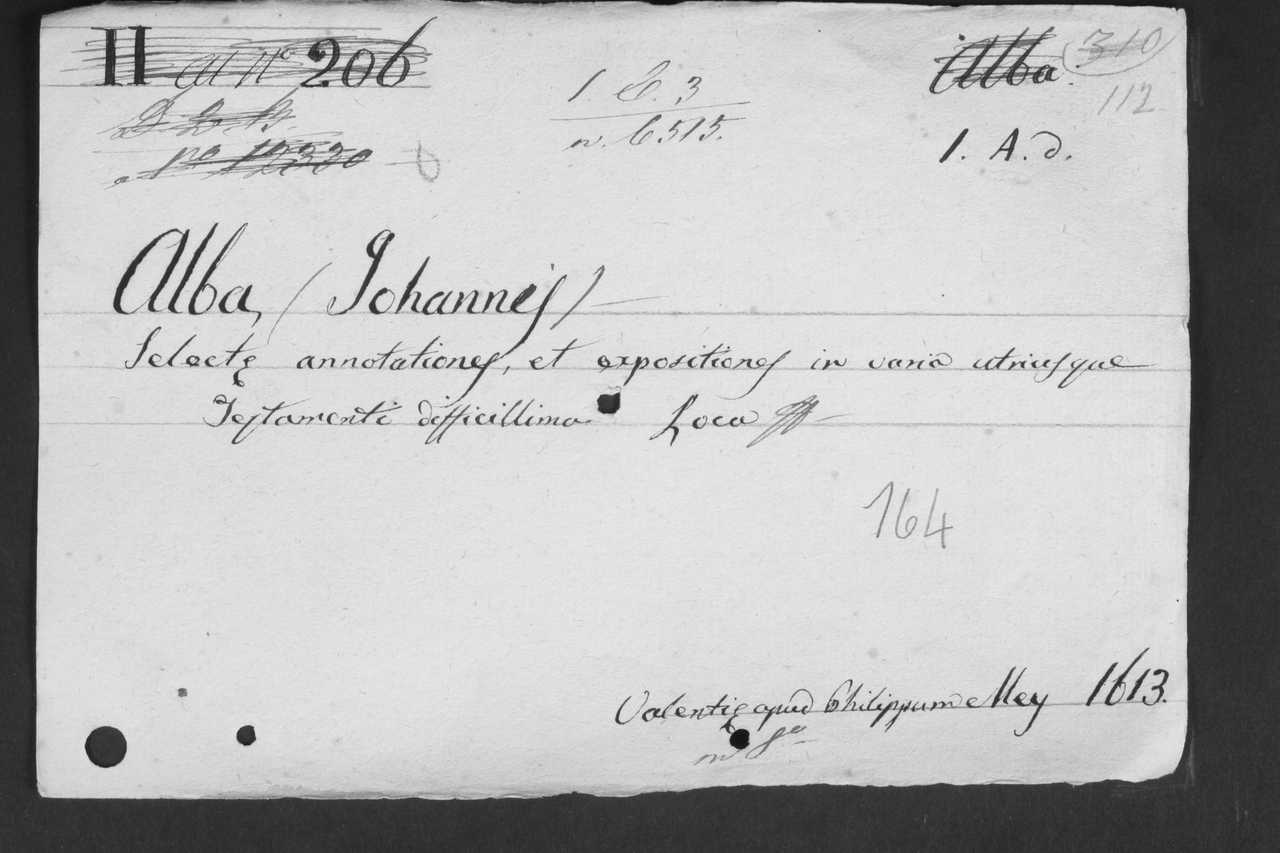 II 206
Alba 310
112
1. C. 3
n. 6515.
1. A. d.
no 12320
Alba, (Johannis)
Selectę annotationes, et expositiones in varia utriusque
Testamenti difficillima Loca
164
Valentię apud Philippum Mey 1613.
in 8º